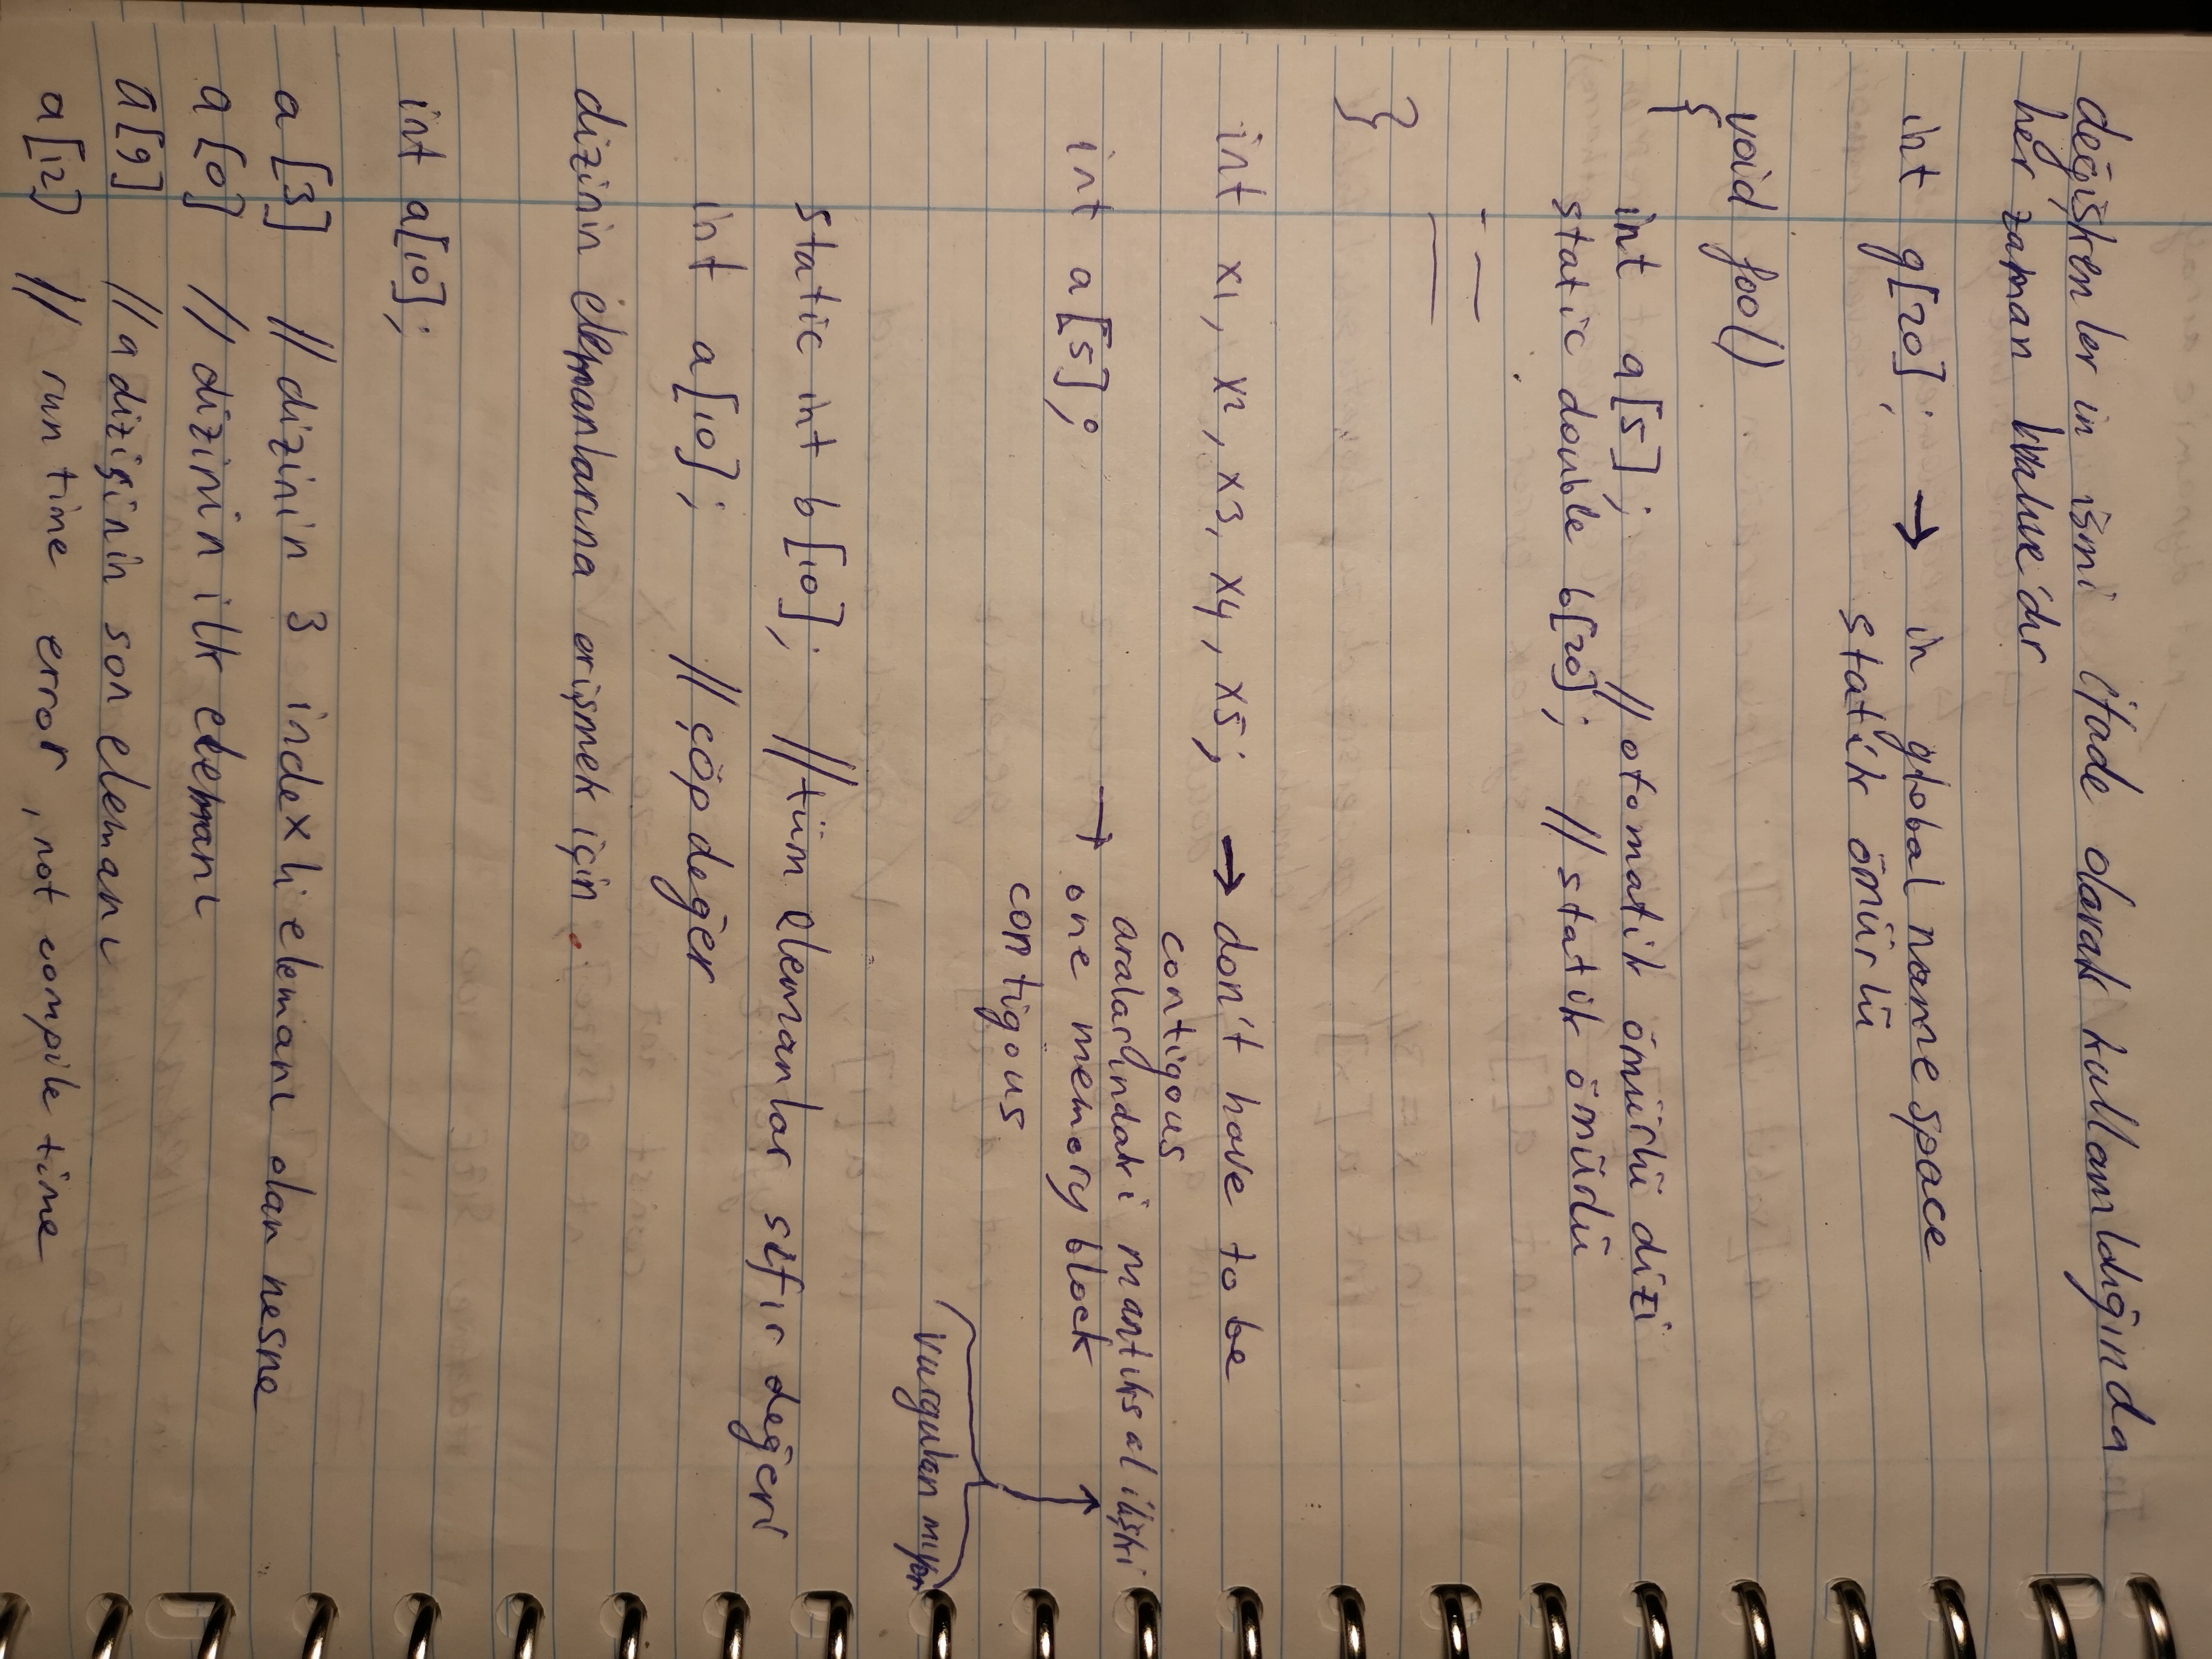 değişkenlerin ismi ifade olarak kullanıldığında
her zaman lvalue'dır
int g[20]; → in global namespace
statik ömürlü
void foo()
{
int a[5]; //otomatik ömürlü dizi
static double b[20]; //statik ömürlü
}
int x1, x2, x3, x4, x5; → don't have to be
contigous
aralarındaki mantıksal ilişki
int a[5]; → one memory block
contigous
vurgulanmıyor
static int b[10]; //tüm elemanlar sıfır değeri
int a[10]; //çöp değer
dizinin elemanlarına erişmek için.
int a[10];
a[3] //dizinin 3 indexli elemanı olan nesne
a[0] //dizinin ilk elemanı
a[9] //a dizisinin son elemanı
a[12] // run time error, not compile time